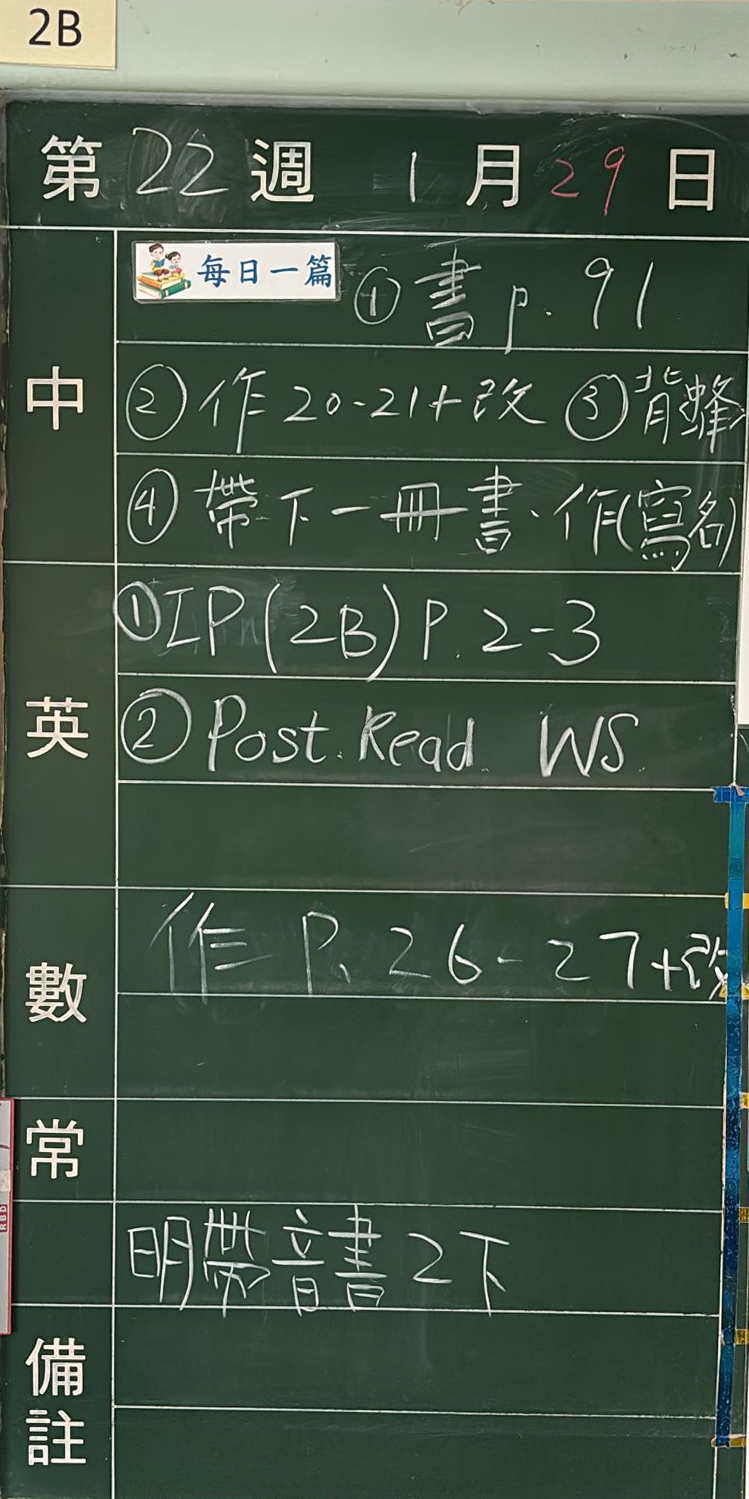 2B
第 22 週 1 月 29 日
中
每日一篇 ①書 p. 91
②作 20-21+改 ③背蜂
④帶下一冊書、作(寫名)
英
①IP (2B) P. 2-3
②Post. Read. WS.
數
作 P. 26-27+改
常
明帶音書2下
備註
RBD